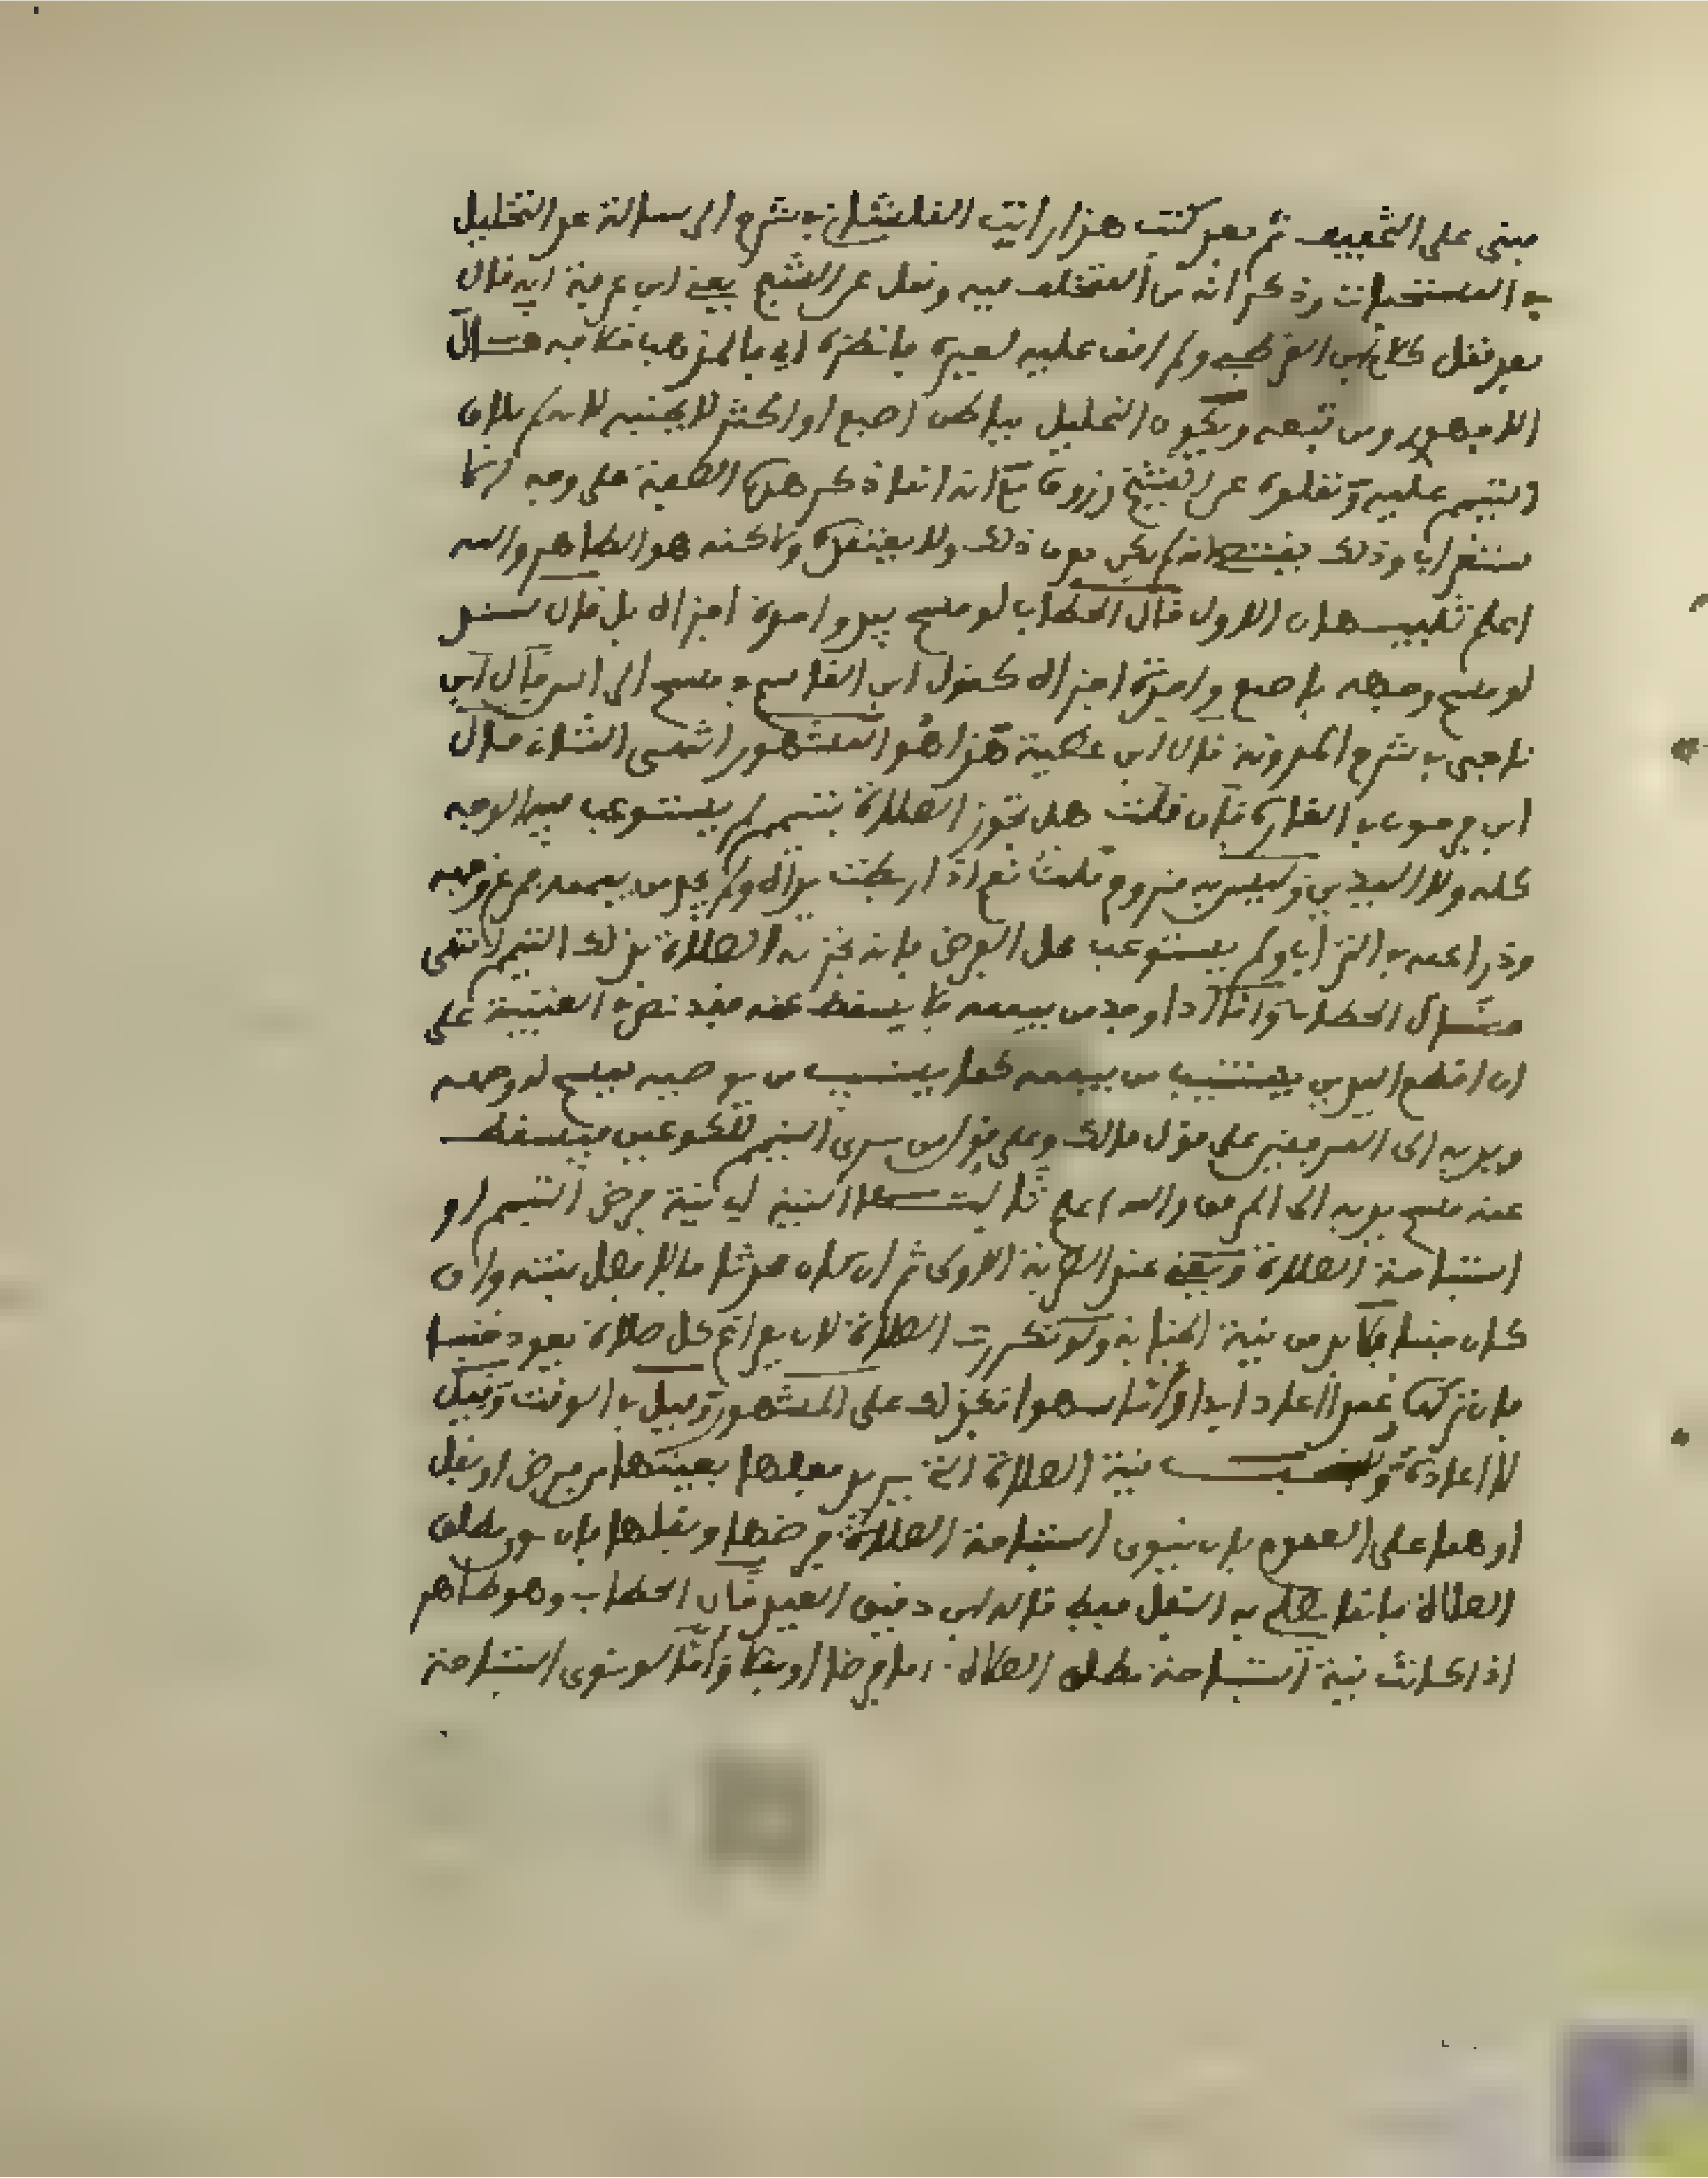 مبنى على التخفيف ثم بعد كتبي هذا رايت القلشاني في شرح الرسالة عد التخليل
في المستحبات وذكر انه من المختلف فيه ونقل عن الشيخ يعني ابن عرفة انه قال
بعد نقل كلام ابن القرطبي ولم اقف عليه لغيره فانظره اي بالمذهب فكانه قال
الاجهوري ومن تبعه ويكون التخليل بباطن اصبع او اكثر لا بجنبه لانه لم يلاق
التيمم عليه ونقلوه عن الشيخ زروق مع انه انما ذكر هذه الصفة على وجه
ستغراب وذلك يقتضي انه لم يكن يعرف ذلك ولا يعتقده ولاكنه هو الظاهر والله
اعلم تنبيهان الاول قال الحطاب لو مسح بيد واحدة اجزاه بل قال سند
لو مسح وجهه باصبع واحدة اجزاه كقول ابن القاسم في مسح الراس قال ابن
ناجي في شرح المدونة قال ابن عطية هذا هو المشهور انتهى الثاني قال
ابن فرحون في الغازه فان قلت هل تجوز الصلاة بتيمم لم يستوعب فيه الوجه
كله ولا اليدين وليس به جروح قلت نعم اذا ربطت يداه ولم يجد من ييممه فمرغ وجهه
وذراعيه في التراب ولم يستوعب محل الفرض فانه تجزيه الصلاة بذلك التيمم انتهى
قال الحطاب واما اذا وجد من ييممه فلا يسقط عنه فقد نص في العتبية على
ان اقطع اليدين يستنيب من ييممه كما يستنيب من يوضيه فيمسح له وجهه
ويديه الى المرفقين على قول مالك وعلى قول من يرى التيمم للكوعين فيسقط
عنه مسح يديه الى المرفق والله اعلم ثالثها النية اي نية فرض التيمم او
استباحة الصلاة وتكفي عند الضربة الاولى ثم ان كان محدثا مالا فعل بنيته وان
كان جنبا فلا بد من نية الجنابة ولو تكررت الصلاة لان بفراغ كل صلاة يعود جنبا
فان تركها عمدا اعاد ابدا واما سهوا فكذلك على المشهور وقيل في الوقت وقيل
لا اعادة وتستحب نية الصلاة التي يريد فعلها بعينها من فرض او نفل
او هما على العموم بان ينوي استباحة الصلاة فرضها ونفلها فان نوى مطلق
الصلاة فانما يصلي به النفل فقط قاله ابن دقيق العيد قال الحطاب وهو ظاهر
اذا كانت نية استباحة مطلق الصلاة اما فرضا او نفلا واما لو نوى استباحة